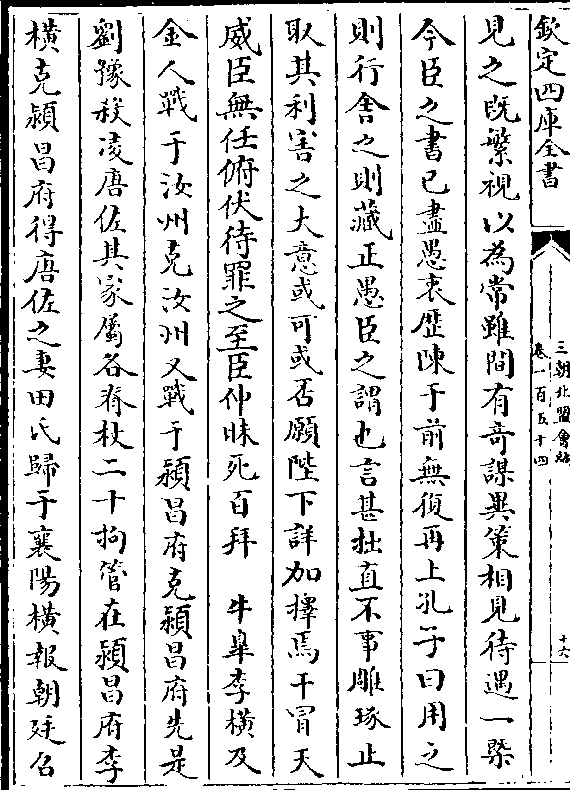 欽定四庫全書
三朝北盟會編
卷一百五十四
十六
見之既繁視以為常雖間有竒謀異策相見待遇一槩
今臣之書已盡愚衷歴陳于前無復再上孔子曰用之
則行舍之則藏正愚臣之謂也言甚拙直不事雕琢止
取其利害之大意或可或否願陛下詳加擇焉干冒天
威臣無任俯伏待罪之至臣仲昧死百拜 牛臯李橫及
金人戰于汝州克汝州又戰于潁昌府克潁昌府先是
劉豫殺凌唐佐其家屬各脊杖二十拘管在潁昌府李
橫克潁昌府得唐佐之妻田氏歸于襄陽橫報朝廷召